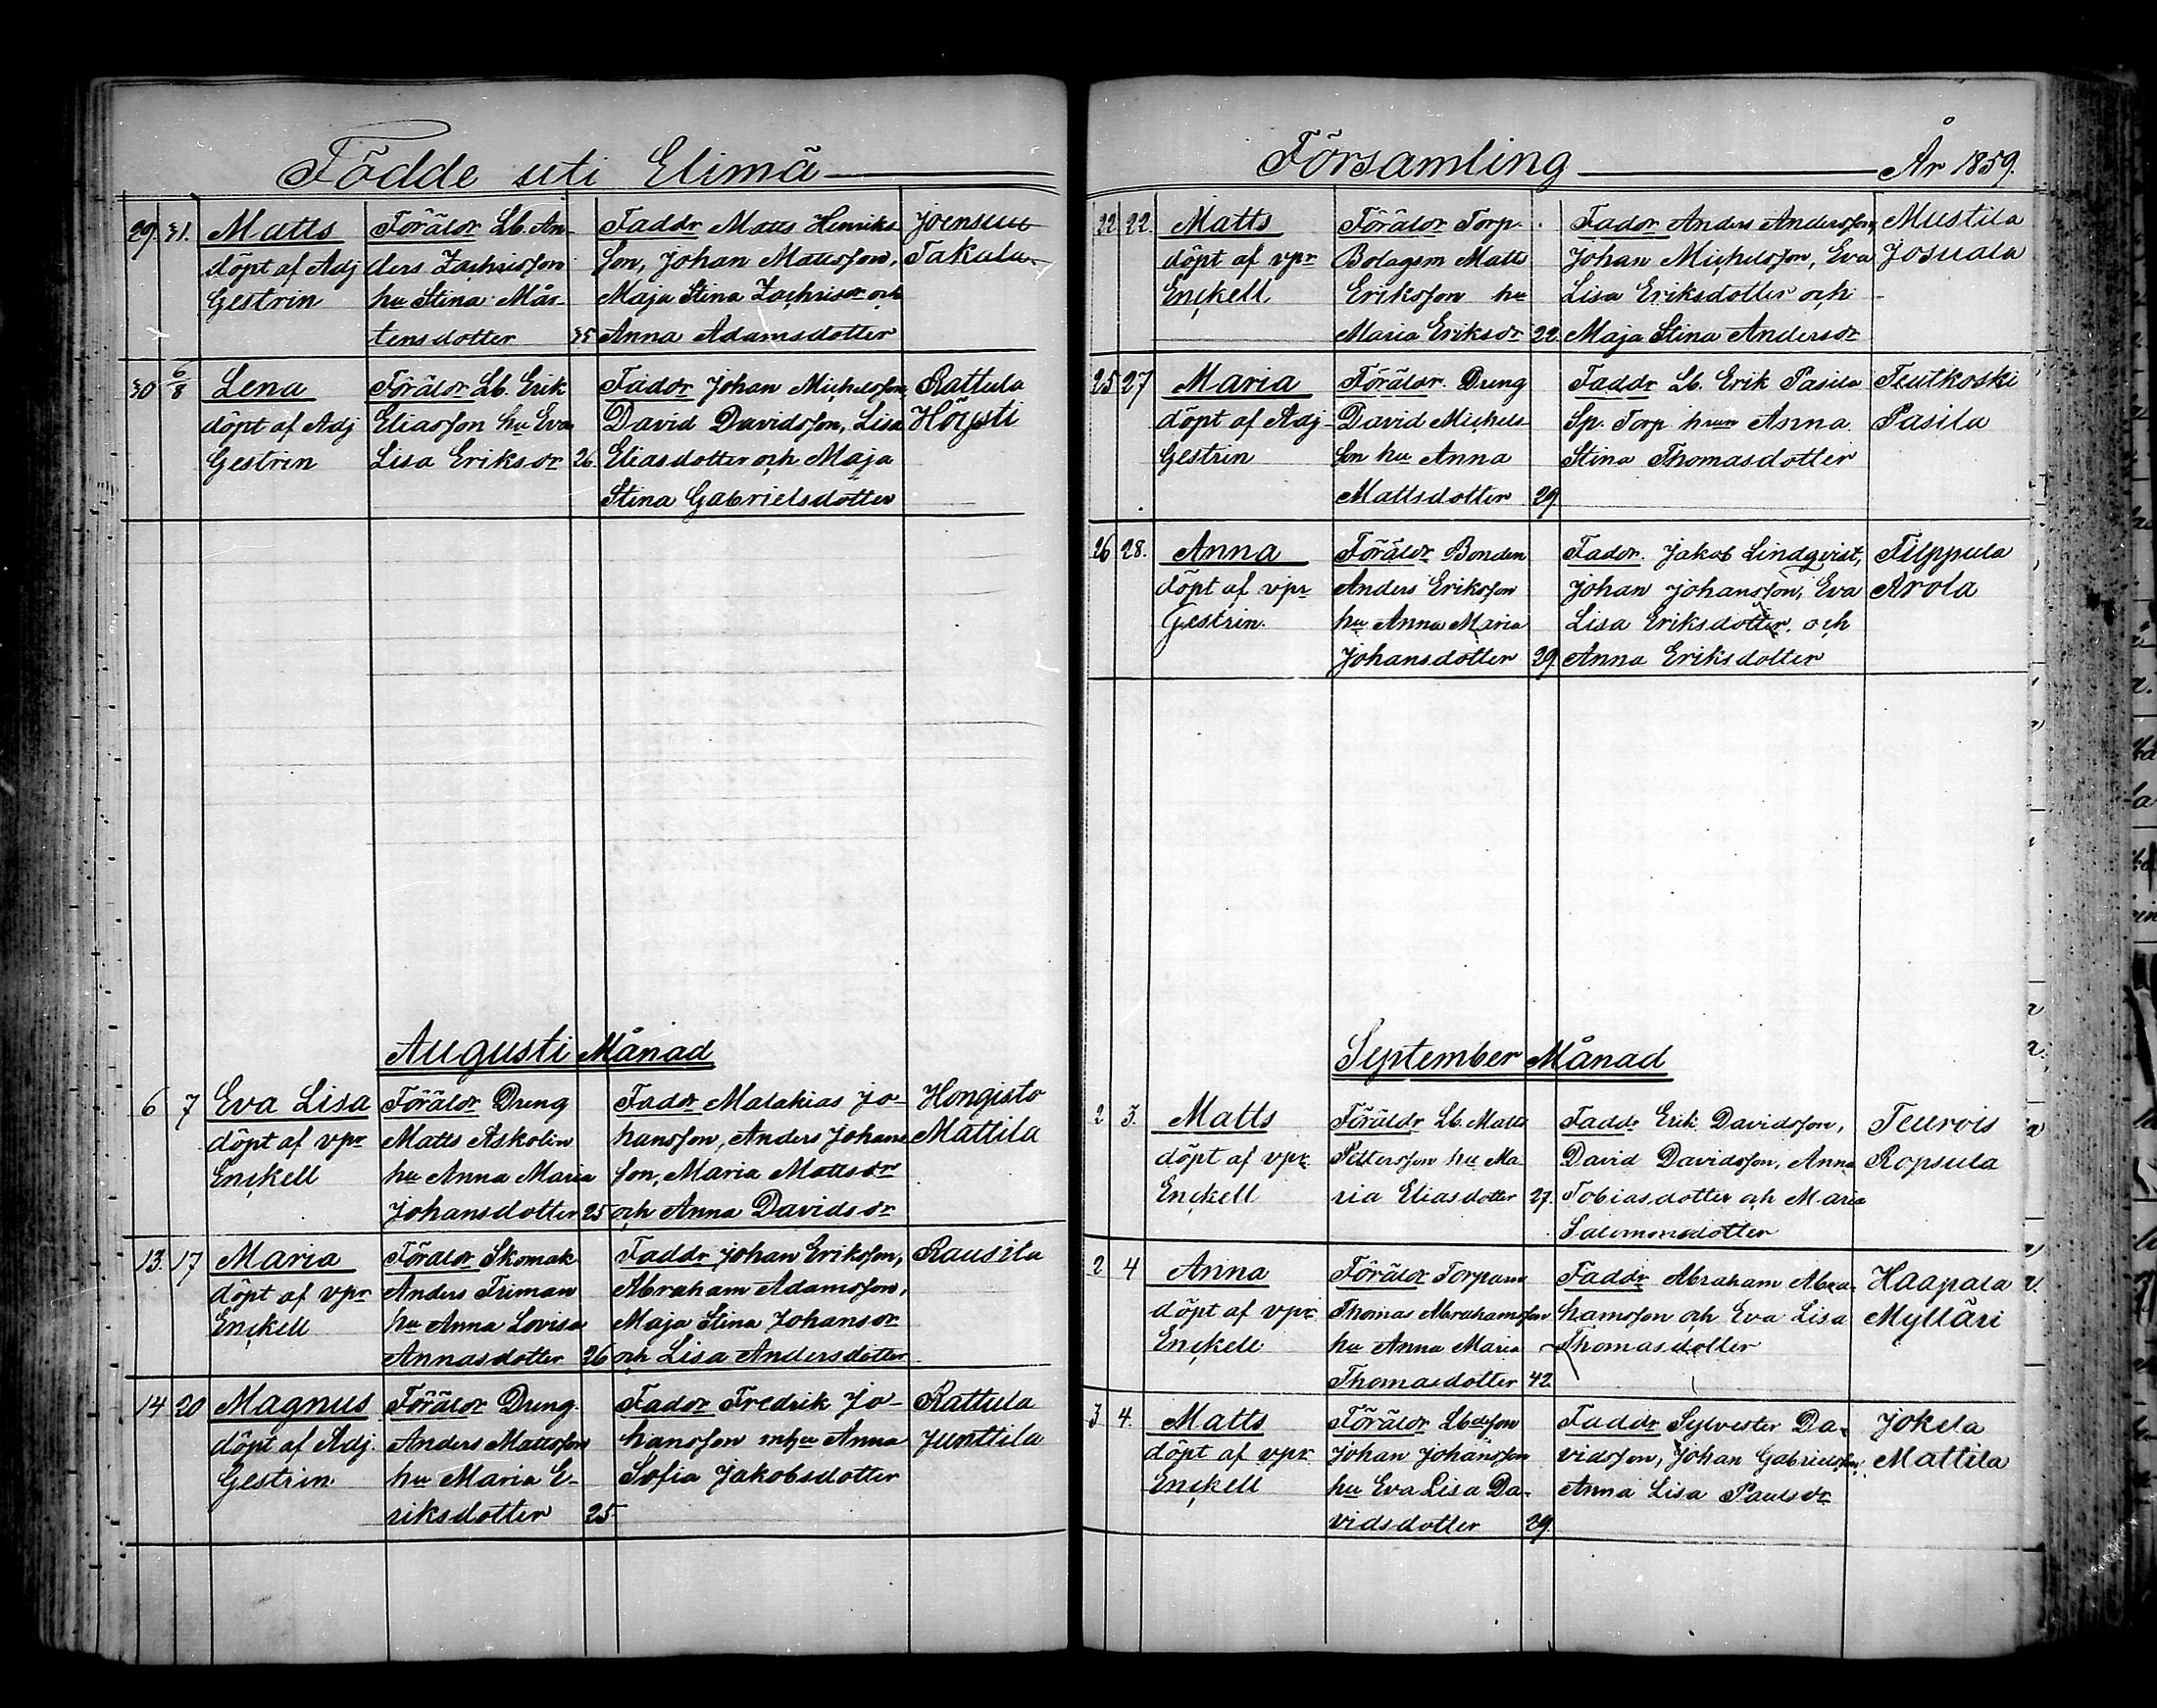 Födde uti Elimä
29. 31. Matts Föräldr Lb. An- Faddr Matts Henriks Joensuu
döpt af Adj ders Zachrisson son, Johan Mattsson, Takala
Gestrin hu Stina Mår- Maja Stina Zachrisdr och
tensdotter 35 Anna Adamsdotter
30 6/8 Lena Föräldr Lb. Erik Faddr Johan Michelsson, Rattula
döpt af Adj Eliasson hu Eva David Davidsson, Lisa Höysti
Gestrin Lisa Eriksdr 26. Eliasdotter och Maja
Stina Gabrielsdotter
Augusti Månad
6 7 Eva Lisa Föräldr Dreng Faddr Malakias Jo- Hongisto
döpt af vpr Matts Askolin hansson, Anders Johans Mattila
Enckell hu Anna Maria son, Maria Mattsdr
Johansdotter 25 och Anna Davidsdr
13. 17 Maria Föräldr Skomak Faddr Johan Eriksson, Rausila
döpt af vpr Anders Friman Abraham Adamsson,
Enckell hu Anna Lovisa Maja Stina Johansdr
Annasdotter 26 och Lisa Andersdotter
14 20 Magnus Föräldr Dreng Faddr Fredrik Jo- Rattula
döpt af Adj. Anders Mattsson hansson mhu Anna Junttila
Gestrin hu Maria E- Sofia Jakobsdotter
riksdotter 25
Församling År 1859.
22 22. Matts Föräldr Torp. Faddr Anders Andersson, Mustila
döpt af vpr Bolagsm Matts Johan Michelsson, Eva Josuala
Enckell Eriksson hu Lisa Eriksdotter och
Maria Eriksdr 22. Maja Stina Andersdr
25 27 Maria Föräldr. Dreng Faddr Lb. Erik Pasila Teutkoski
döpt af Adj David Michels Sp. Torp hrun Anna Pasila
Gestrin son hu Anna Stina Thomasdotter
Mattsdotter 29.
26 28. Anna Föräldr Bonden Faddr. Jakob Lindqvist, Filppula
döpt af vpr Anders Eriksson Johan Johansson, Eva Arola
Gestrin. hu Anna Maria Lisa Eriksdotter och
Johansdotter 29. Anna Eriksdotter
September Månad
2 3. Matts Föräldr Lb. Matts Faddr Erik Davidsson, Teurois
döpt af vpr. Pettersson hu Ma David Davidsson, Anna Ropsula
Enckell ria Eliasdotter 27. Tobiasdotter och Maria
Salomonsdotter
2 4 Anna Föräldr Torparn Faddr Abraham Abra- Haapala
döpt af vpr Thomas Abrahamsson hamsson och Eva Lisa Mylläri
Enckell hu Anna Maria Thomasdotter
Thomasdotter 42.
3 4. Matts Föräldr Lbdsson Faddr Sylvester Da- Jokela
döpt af vpr Johan Johansson vidsson, Johan Gabrielsson, Mattila
Enckell hu Eva Lisa Da- Anna Lisa Paulsdr
vidsdotter 29.